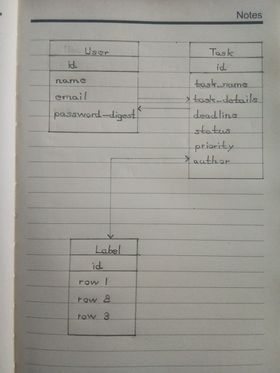 Notes
User
id
name
email
password-digest
Task
id
task_name
task-details
deadline
status
priority
author
Label
id
row 1
row 2
row 3